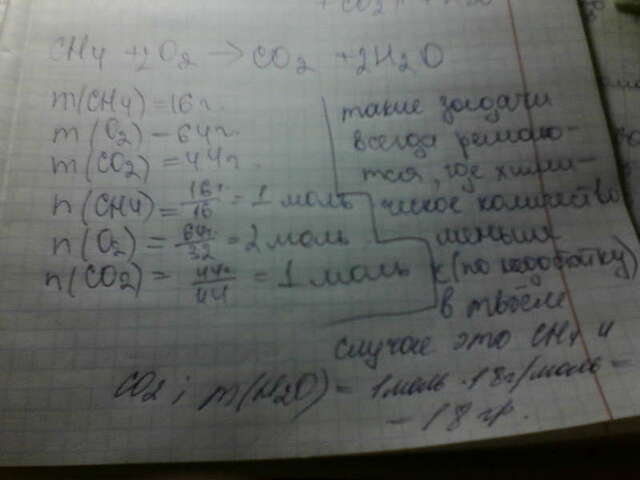 CH4 + 2O2 -> CO2 + 2H2O
m(CH4) = 16 г.
m(O2) - 64 г.
m(CO2) = 44 г.
n(CH4) = 16г/16 = 1 моль
n(O2) = 64г/32 = 2 моль
n(CO2) = 44г/44 = 1 моль
такие задачи
всегда решаю-
тся, где хими-
ческое количество
меньше
(по недостатку)
в твоём
случае это CH4 и
CO2; m(H2O) = 1 моль · 18 г/моль =
= 18 гр.